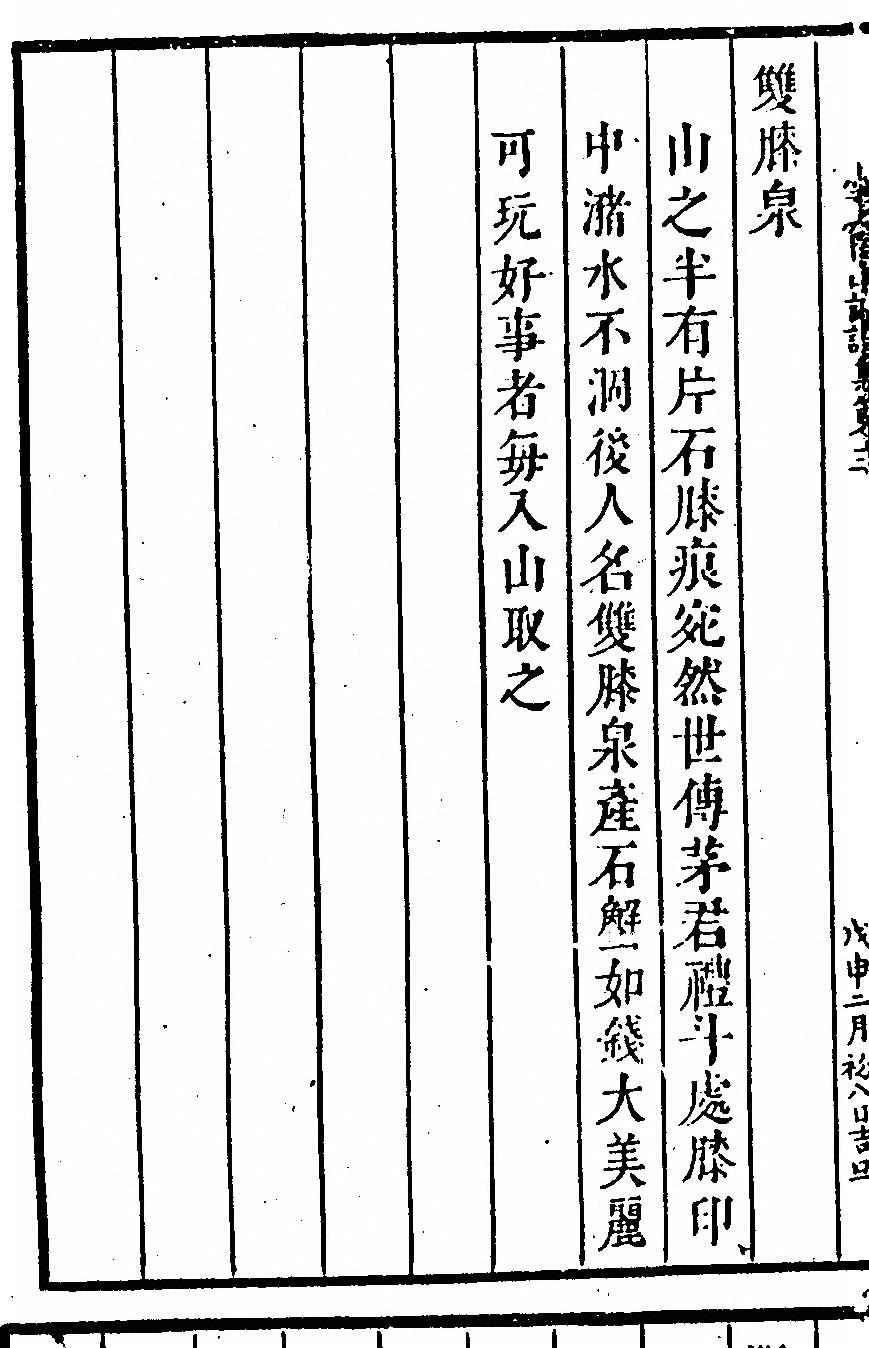 戊申二月初八日吉旦
雙膝泉
山之半有片石膝痕宛然世傳茅君禮斗處膝印
中潴水不涸後人名雙膝泉產石蟹如錢大美麗
可玩好事者每入山取之